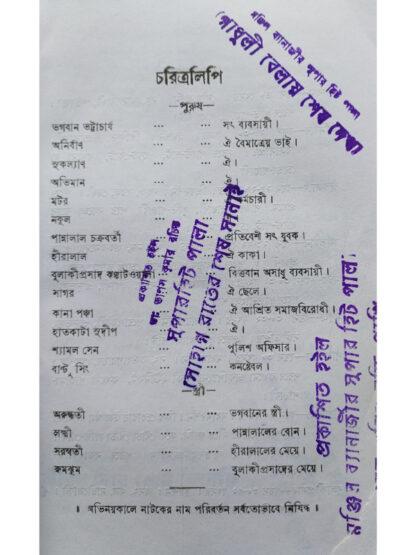 মঞ্জিল ব্যানার্জীর সুপার হিট পালা
গোধুলী বেলায় শেষ দেখা
চরিত্রলিপি
—পুরুষ—
ভগবান ভট্টাচার্য ... ... সৎ ব্যবসায়ী।
অনির্বাণ ... ... ঐ বৈমাত্রেয় ভাই।
সুকল্যাণ ... ... ঐ।
অভিমান ... ...
মটর ... ... মচারী।
নকুল ... ...
পান্নালাল চক্রবর্তী ... ... প্রতিবেশী সৎ যুবক।
হীরালাল ... ঐ কাকা।
বুলাকীপ্রসাদ ঝঞ্ঝাটওয়ালা বিত্তবান অসাধু ব্যবসায়ী।
সাগর ... ঐ ছেলে।
কানা পঞ্চা ... ঐ আশ্রিত সমাজবিরোধী।
হাতকাটা সুদীপ ... ... ঐ।
শ্যামল সেন ... ... পুলিশ অফিসার।
বান্টু সিং ... ... কনষ্টেবল।
—স্ত্রী—
অরুন্ধতী ... ... ভগবানের স্ত্রী।
লক্ষ্মী ... ... পান্নালালের বোন।
সরস্বতী ... ... হীরালালের মেয়ে।
রুমঝুম ... ... বুলাকীপ্রসাদের মেয়ে।
॥ অভিনয়কালে নাটকের নাম পরিবর্তন সর্বতোভাবে নিষিদ্ধ ॥
প্রকাশিত হইল
ডাঃ তাপস কুমার রচিত
সুপারহিট পালা
সোহাগ রাতের শেষ সানাই
প্রকাশিত হইল
মঞ্জিল ব্যানার্জীর সুপার হিট পালা